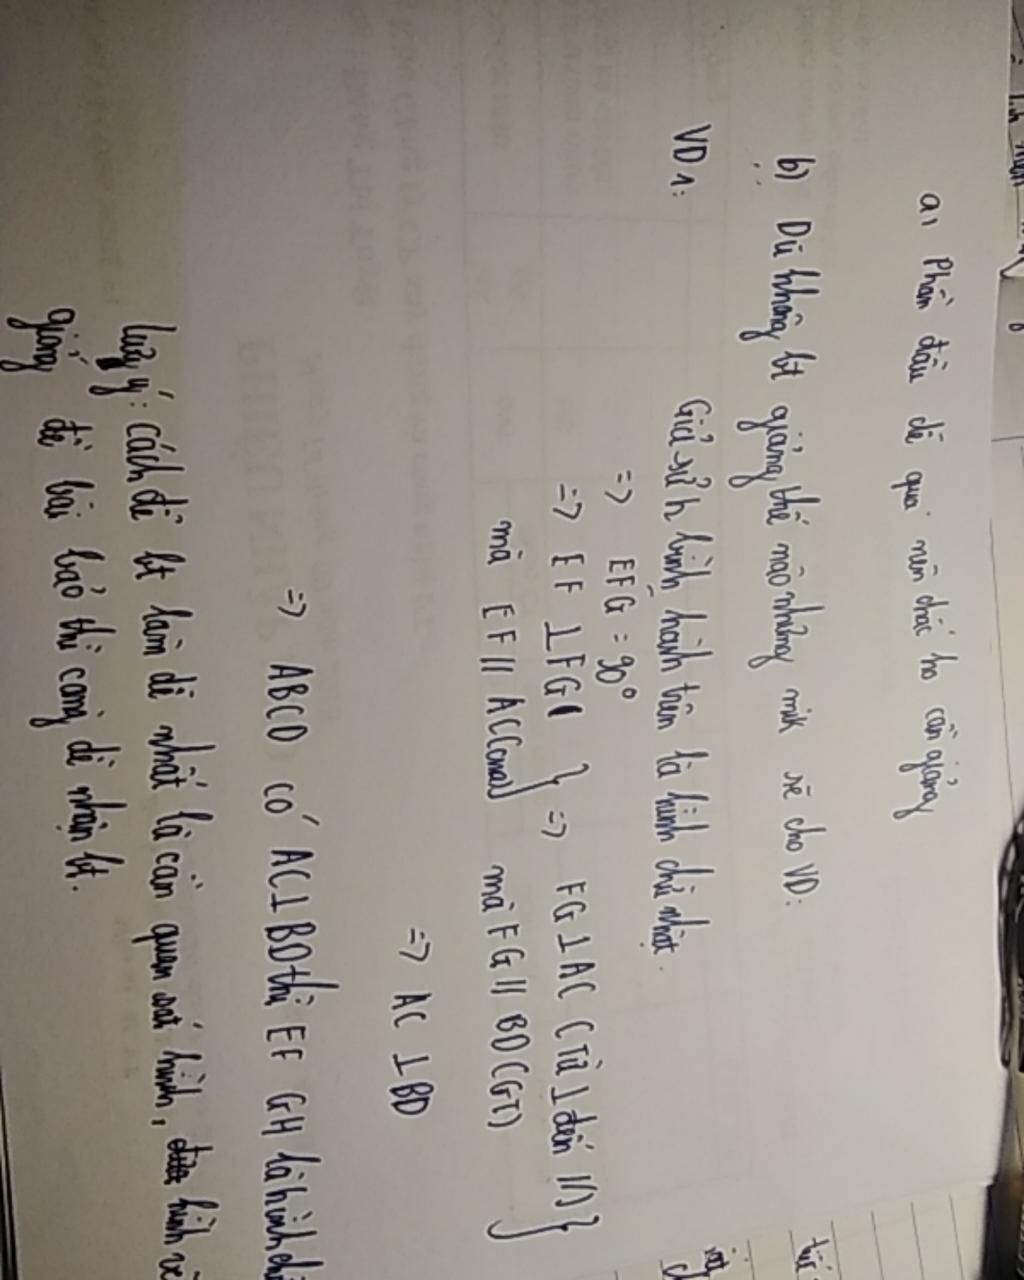 a) Phần đầu dễ quá nên chắc ko cần giảng
b) Dù không bt giảng thế nào nhưng mik sẽ cho VD:
VD1: Giả sử h bình hành trên là hình chữ nhật.
=> EFG = 90°
=> EF ⊥ FG } => FG ⊥ AC (Từ ⊥ đến //) }
mà EF // AC (cmt) mà FG // BD (GT)
=> AC ⊥ BD
=> ABCD có AC ⊥ BD thì EF GH là hình
Lưu ý: cách để bt làm dễ nhất là cần quan sát hình, hình vẽ
giống đề bài bảo thì càng dễ nhận bt.